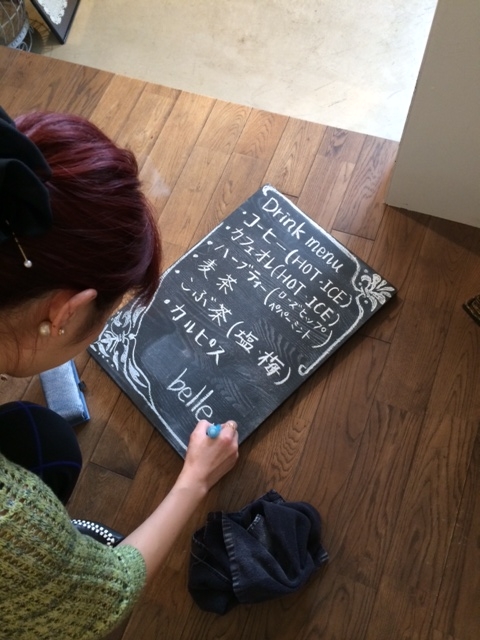 Drink menu
・コーヒー(HOT.ICE)
・カフェオレ(HOT.ICE)
・ハーブティー(ローズヒップ ペパーミント)
・麦茶
・こぶ茶(塩 梅)
・カルピス
belle